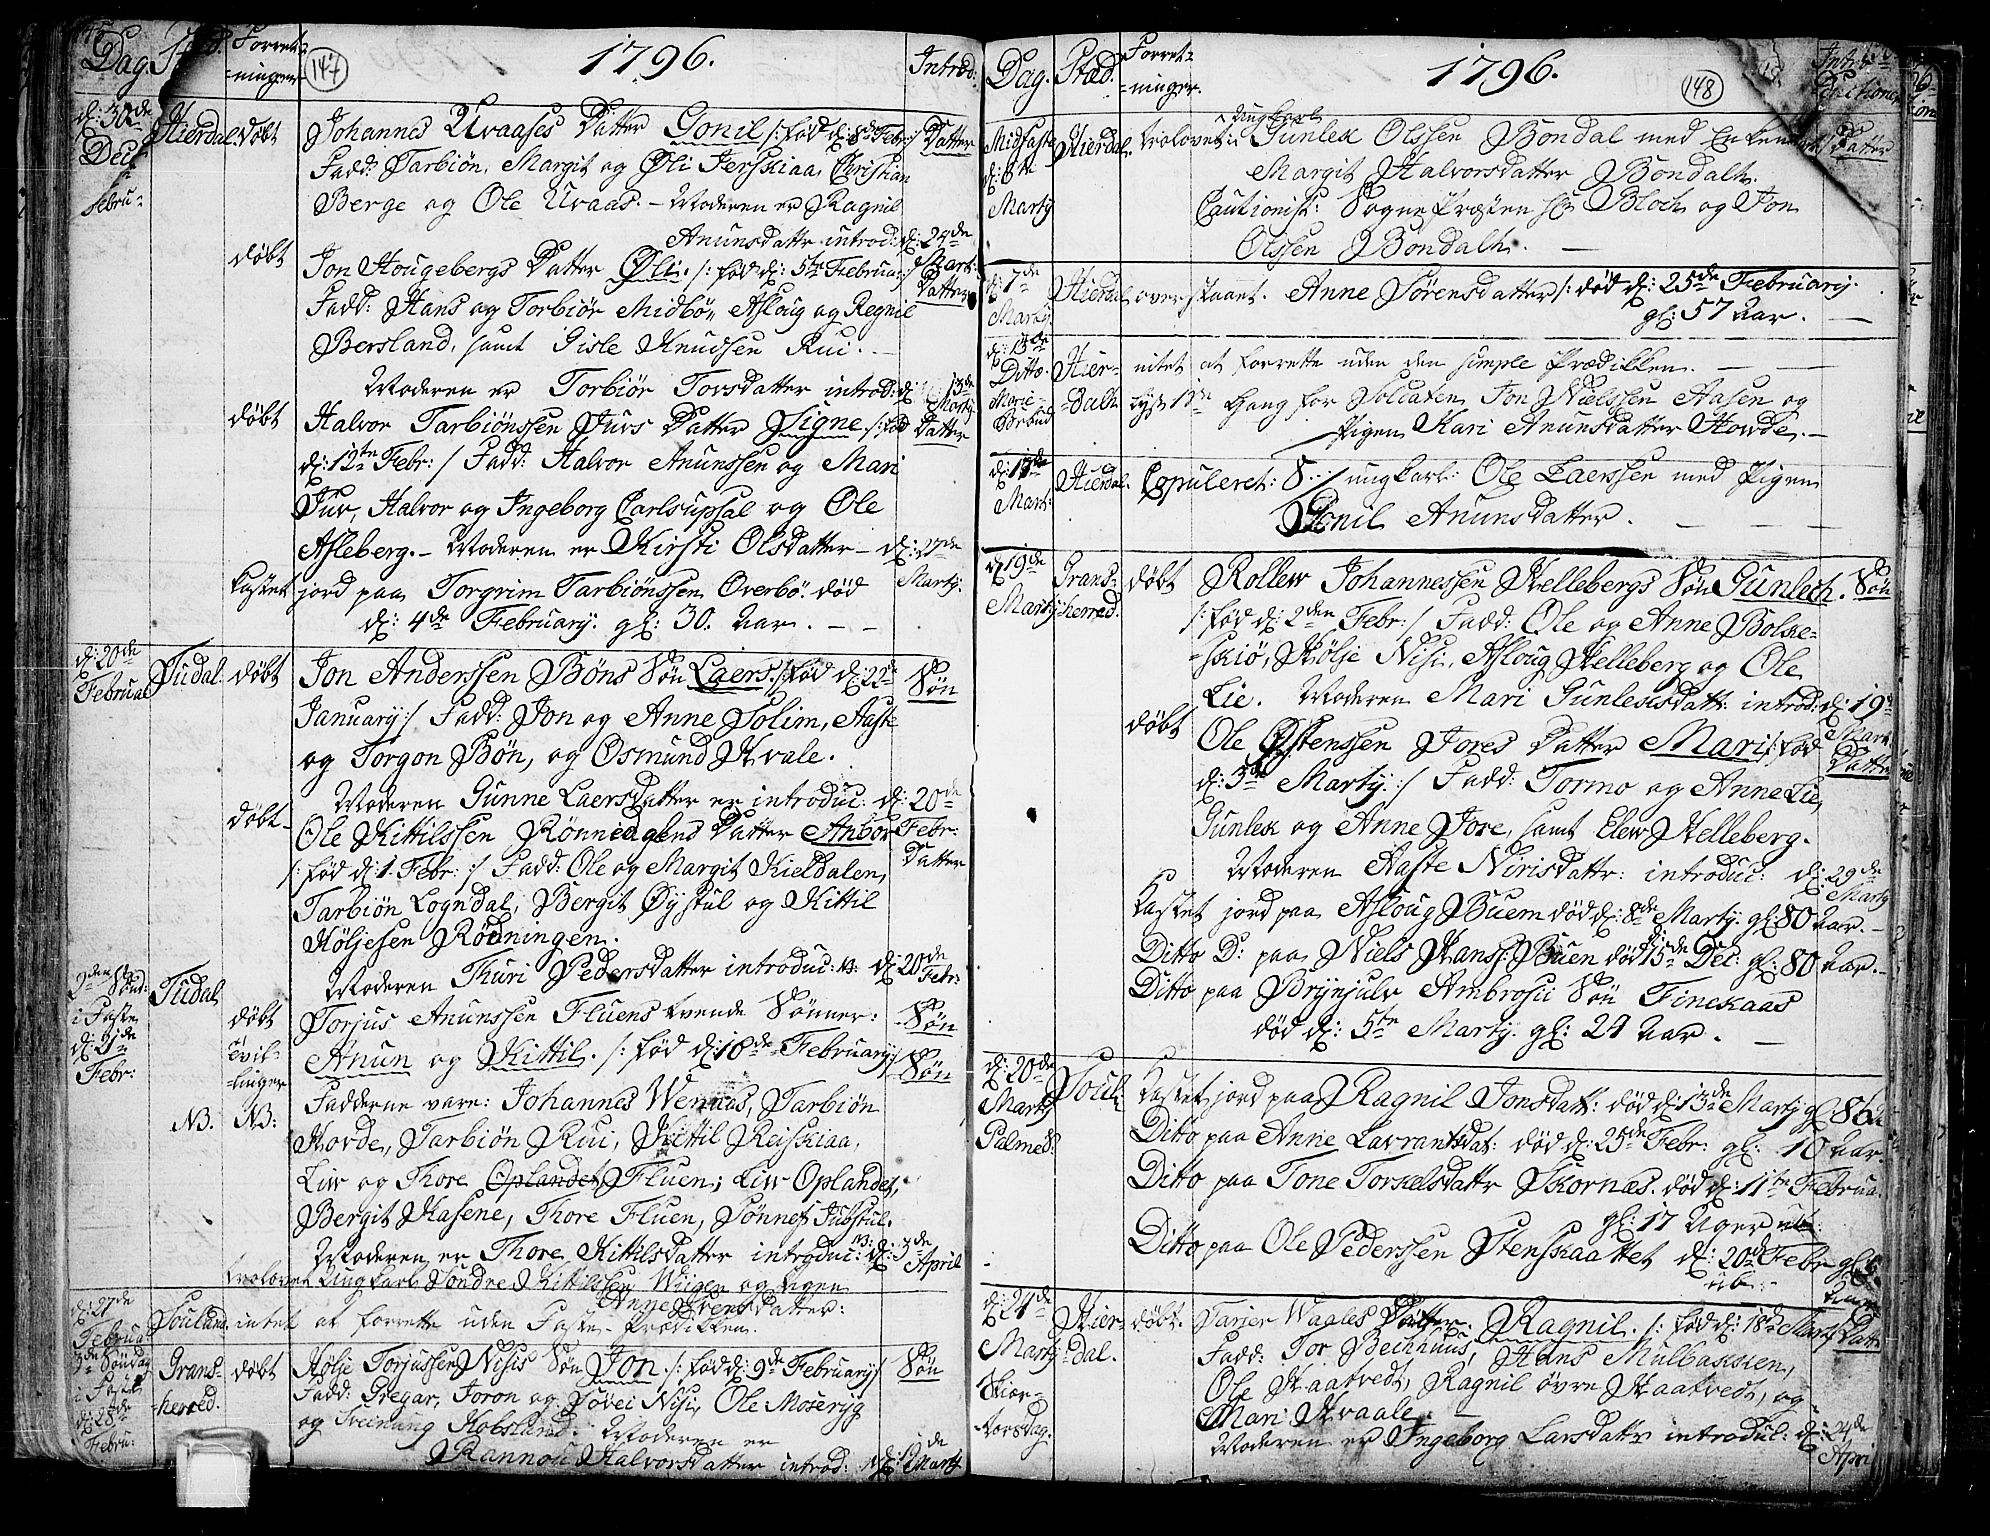 Dag. Forret-
-ninger
147
1796.
Introd:
d: 30de Hierdal. døbt Johannes Uvaases Datter Gonil /: fød d: 8de Febr: / Datter
Fadd: Tarbiøn, Margit og Øli Jerskiaa, Christian
Febru- Berge og Ole Uvaas. - Moderen er Ragnil
Anunsdatter introd: d: 24de Mart:
døbt Jon Hougebergs Datter Øli. /: fød d: 5te Februa: / Datter
Fadd: Hans og Torbiør Midbø, Asloug og Regnil
Bersland, samt Gisle Knudsen Rui. -
Moderen er Torbiør Torsdatter introd: d: 13de Marty
døbt Halvor Tarbiønssen Juvs Datter Signe. /: fød Datter
d: 12te Febr: / Fadd: Halvor Anunssen og Mari
Juv, Halvor og Ingeborg Carlsupsal og Ole
Asleberg. - Moderen er Kirsti Olsdatter - d: 27de Marty.
Kastet jord paa Torgrim Tarbiønssen Overbø. død
d: 4de February. gl: 30. Aar. - -
d: 20de Februa Tudal. døbt Jon Anderssen Bøns Søn Laers. /: fød d: 22de Søn
January / Fadd: Jon og Anne Solim, Aaste
og Torgon Bøn, og Osmund Kvale.
Moderen Gunne Laersdatter er introduc: d: 20de Febr:
døbt - Ole Kittilssen Rønningens Datter Anbor Datter
/: fød d: 1 Febr: / Fadd: Ole og Margit Kieldalen,
Tarbiøn Logndal, Bergit Øystul og Kittil
Høljesen Rødningen.
Moderen Thuri Pedersdatter introduc: d: 20de Febr:
2den Sønd: i Faste d: 21de Febr: Tudal døbt Torjus Anunssen Fluens tvende Sønner: Søn
Tvil-linger Anun og Kittil. /: fød d: 18de February / Søn
NB. NB: Fadderne vare: Johannes Wernaas, Tarbiøn
Hovde, Tarbiøn Rui, Kittil Reiskiaa,
Liv og Thore Oplandet Fluen; Liv Oplandet,
Bergit Hasene, Thore Fluen, Sønnef Jubstul.
Moderen er Thore Kittilsdatter introduc: d: 3de April
trolovet Ungkarl Søndre Kittilssen Wiigen og Pigen
d: 27de Februa Souland. intet at forrette uden Faste-Prædikken.
3de Søndag i Faste d: 28de Febru: Grans-herred. døbt Holje Torjussen Nisis Søn Jon /: fød d: 9de February / Søn
Fadd: Gregar, Joron og Søvei Nisi, Ole Moseryg
og Sveinung Kobsland. Moderen er
Rannou Halvorsdatter introd: Marty
Dag. Stæd. Forret-
-ninger.
1796.
148
Midfaste d: 6te Marty Hierdal. trolovet ungkarl Gunlek Olssen Bondal med
Margit Halvorsdatter Bondalh.
Cautionist: Sogne Præsten Hr Bloch og Jon
Olssen Bondalh. -
d: 7de Marty. Hierdal overstaaet. Anne Sørensdatter /: død d: 25de February.
gl: 57 Aar. -
d: 13de Ditto. Hier-dalh intet at forrette uden den simple Prædikken. -
Lyst 1ste Gang for Soldaten Jon Nielssen Aasen og
Pigen Kari Anunsdatter Hovde. -
d: 17de Mart: Hierdal. Copuleret: ungkarl: Ole Laerssen med Pigen
Gonil Anunsdatter. -
d: 19de Marty Grans-herred. døbt Rollew Johannessen Hellebergs Søn Gunlech. Søn
/: fød d: 2den Febr: / Fadd: Ole og Anne Bolke-
-skiø, Hølje Nisi, Asloug Helleberg og Ole
Lie. Moderen Mari Gunleksdatt: introd: d: 19de Mart.
døbt Ole Østenssen Jores Datter Mari /: fød Datter
d: 3de Marty: / Fadd: Tormo og Anne Lie,
Gunlek og Anne Jore, samt Elew Helleberg.
Moderen Aaste Nirisdatter: introduc: d: 29de Marty
Kastet jord paa Asloug Buem død d: 8de Marty gl: 80 Aar. -
Ditto D: paa Niels Hanss: Buen død 15de Dec: gl: 80 Aar. -
Ditto paa Brynjulv Ambrosii Søn Finekaas
død d: 5te Marty. gl: 24 Aar. -
d: 20de Marty Palmes: Soul: Kastet jord paa Ragnil Jonsdatt: død d: 13de Marty gl 86
Ditto paa Anne Lavrantsdat: død d: 25de Febr: gl: 10 Aar.
Ditto paa Tone Torkelsdattr Skornæs. død d: 11te Februa.
gl: 17 Uger
Ditto paa Ole Pederssen Stenskaattet d: 20de Febr gl
d: 24de Marty Skier-torsdag. Hier-dal. døbt. Tarjer Waales Datter. Ragnil. /: fød d: 18de Marty Datt
Fadd: Tor Bechhuus, Hans Mulbakken,
Ole Skaatvedt, Ragnil øvre Skaatvedt, og
Mari Kvaale. -
Moderen er Ingeborg Larsdattr introduc: d: 24de April